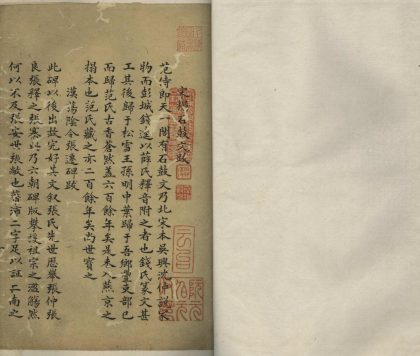 宋搨石鼓文跋
范侍郎天一閣有石鼓文乃北宋本吳興沈仲說家
物而彭城錢逵以薛氏釋音附之者也錢氏篆文甚
工其後歸于松雪王孫明中葉歸于吾鄉豐吏部已
而歸范氏古香蒼然蓋六百餘年矣是未入燕京之
搨本也范氏藏之亦二百餘年矣尚世寶之
漢蕩陰令張遷碑跋
此碑以後出故完好其文敘張氏先世歷舉張仲張
良張釋之張騫此乃六朝碑版攀援祖宗之濫觴然
何以不及張安世張敞也蔽沛二字足以証二南之